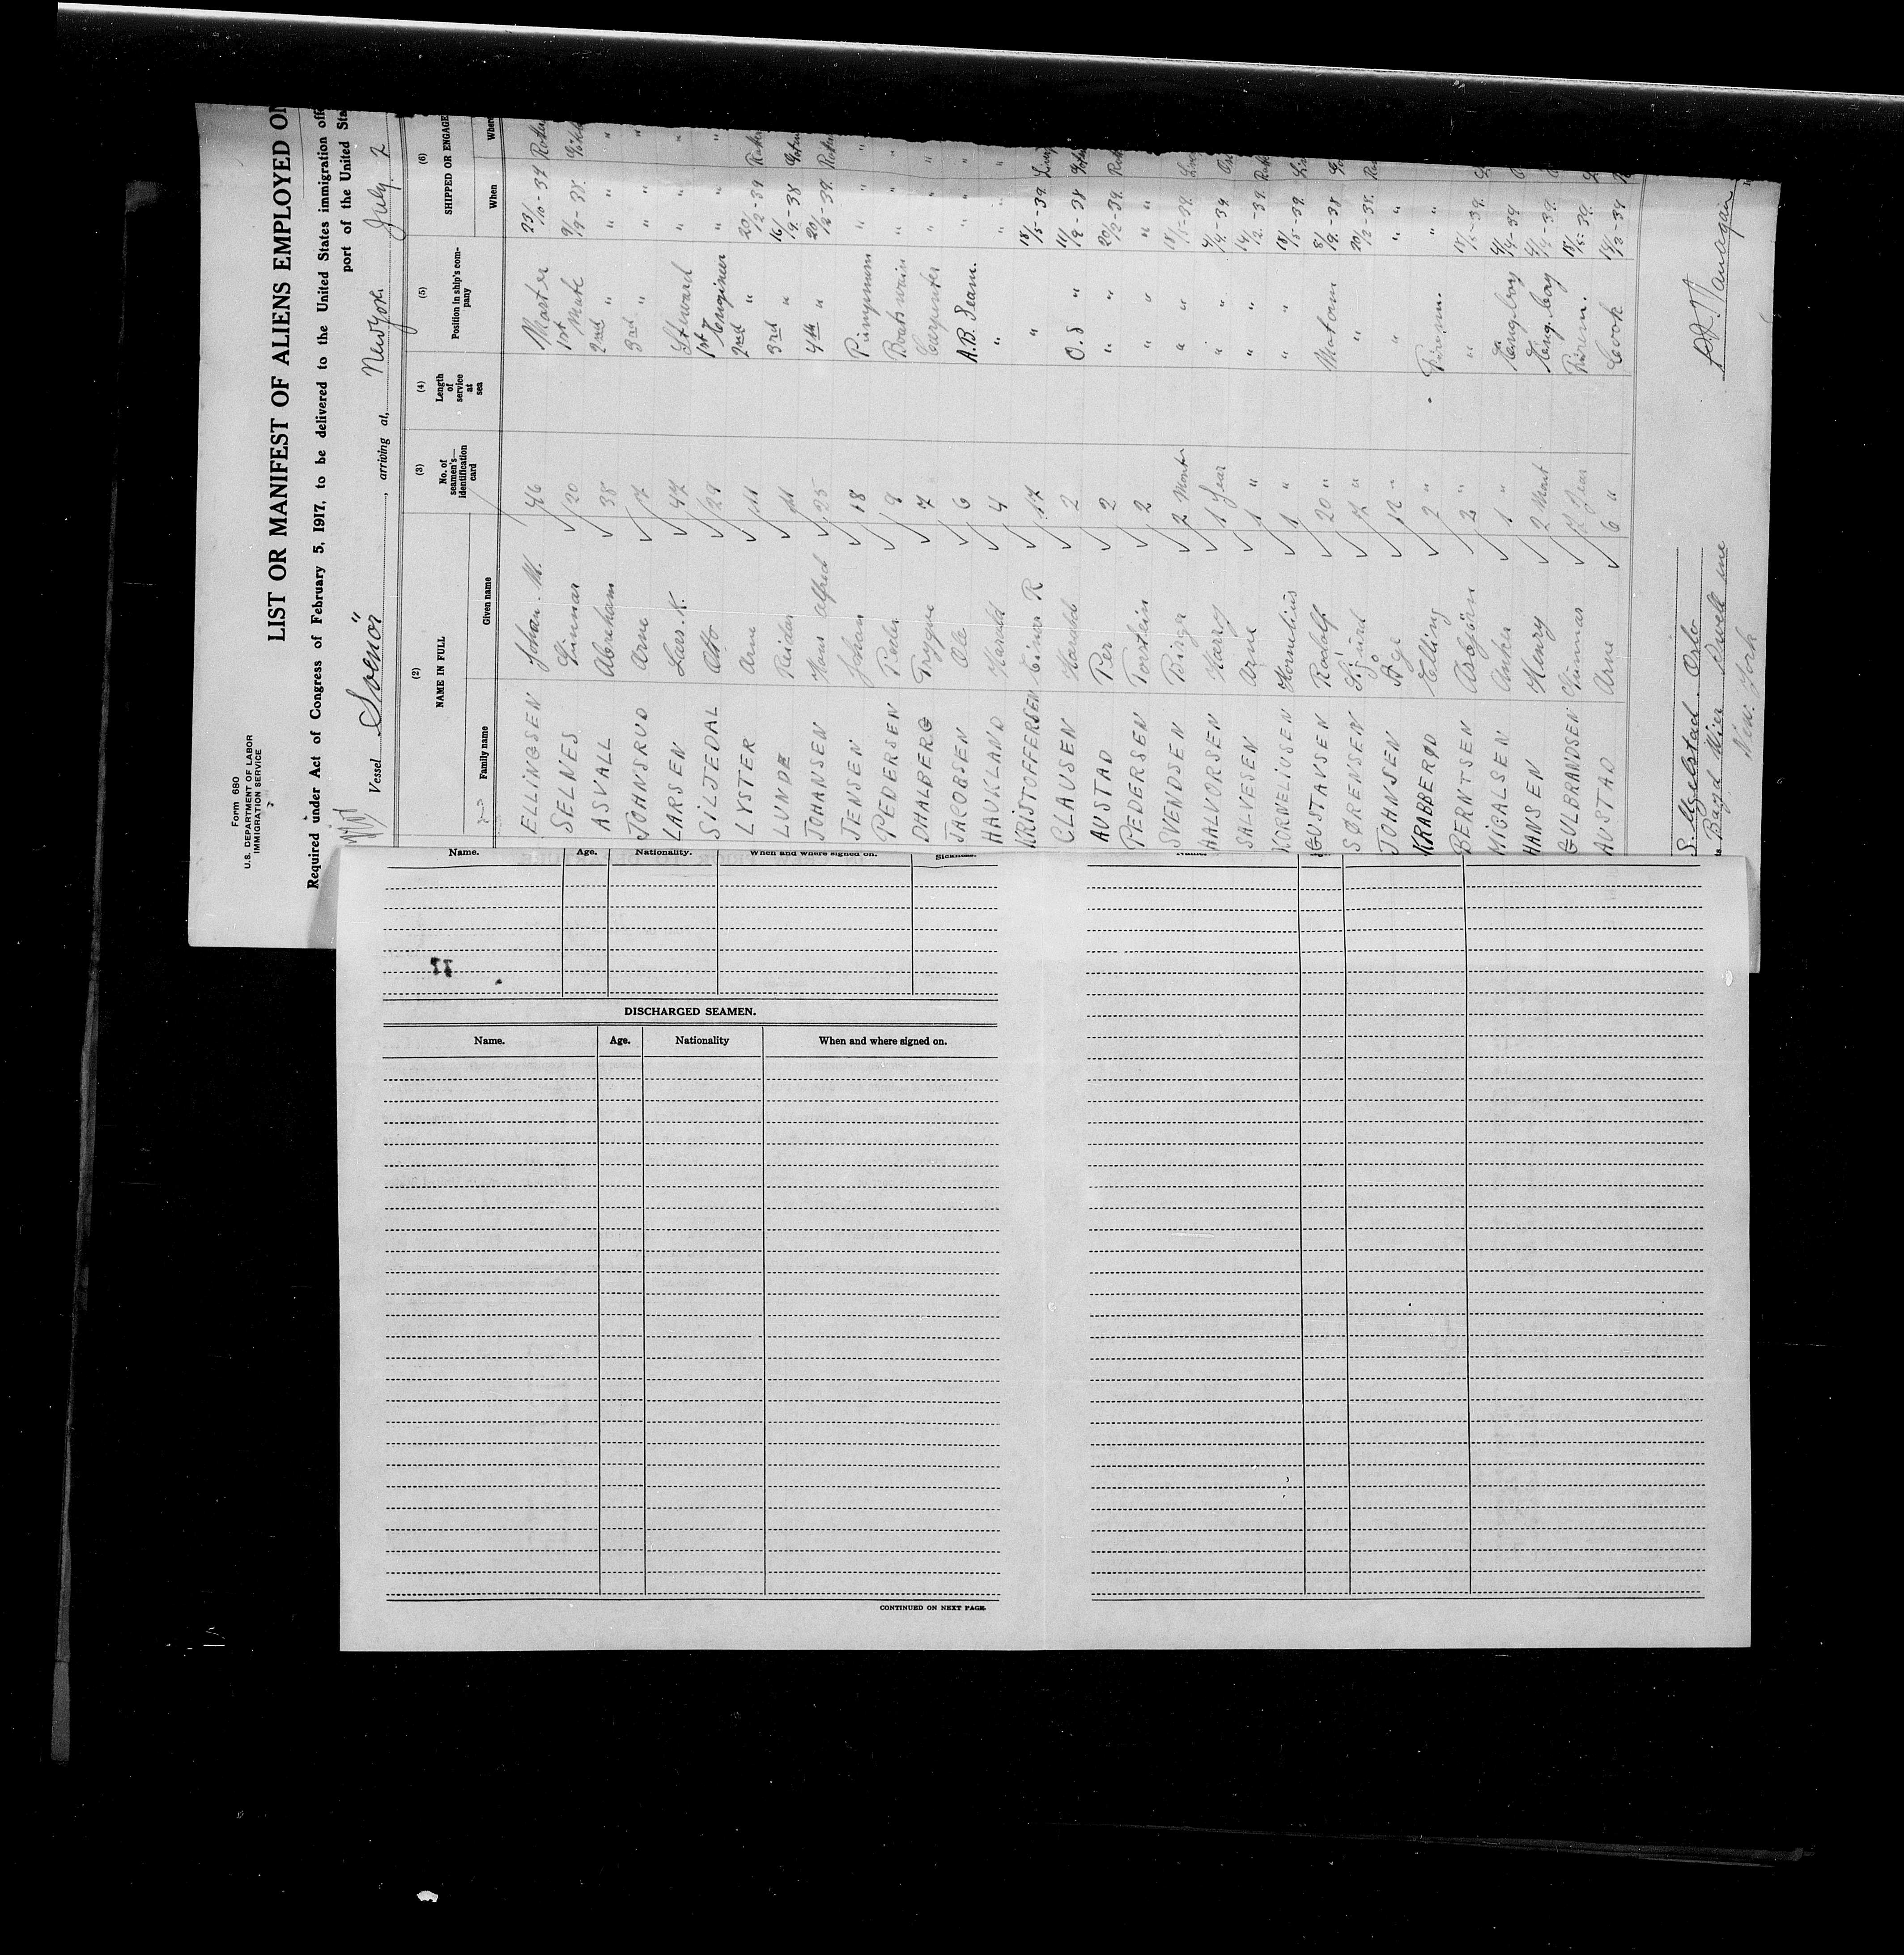 Form 680
U. S. DEPARTMENT OF LABOR
IMMIGRATION SERVICE
LIST OR MANIFEST OF ALIENS EMPLOYED ON
Required under Act of Congress of February 5, 1917, to be delivered to the United States immigration
port of the United
Vessel Soenör, arriving at, New York July 2
(2) (3) (4) (5) (6)
NAME IN FULL No. of seamen's identification card Length of service at sea Position in ship's company SHIPPED OR ENGAGE
Family name Given name When Where
ELLINGSEN Johan. M. 46 Master 23/10-34
SELNES Gunnar 20 1st Mate 9/9-38.
ASVALL Abraham 38 2nd " "
JOHNSRUD Arne 7 3rd " "
LARSEN Lars. K. 47 Steward "
SILJEDAL Otto 29 1st Enginer "
LYSTER Arne 11 2nd " 20/2-39
LUNDE Reidar 11 3rd " 16/9-38
JOHANSEN Hans Alfred 25 4th " 20/2-39.
JENSEN Johan 18 Pumpman "
PEDERSEN Peder 9 Boatswain "
DHALBERG Trygve 7 Carpenter "
JACOBSEN Ole 6 A.B. Seam. "
HAUKLAND Harald 4 " "
KRISTOFFERSEN Einar R 17 " 18/5-39.
CLAUSEN Harald 2 O.S " 11/9-38
AUSTAD Per 2 " " 20/2-39.
PEDERSEN Torstein 2 " " "
SVENDSEN Birger 2 Month " " 18/5-39.
HALVORSEN Harry 1 Year " " 4/4-39.
SALVESEN Arne 1 " " " 14/2-39.
KORNELIUSEN Kornelius 1 " " " 18/5-39.
GUSTAVSEN Rodolf 20 " Matom 8/9-38
SØRENSEN Sigurd 7 " " 20/2-38.
JOHNSEN Åge 12 " " "
KRABBERØD Elling 2 " Firem. "
BERNTSEN Asbjörn 2 " " 18/5-39.
MICALSEN Anker 1 " 4/4-39
HANSEN Henry 2 Mont Eng. boy 4/4-39.
GULBRANDSEN Gunnar 7 Year Firem. 18/5-39.
AUSTAD Arne 6 " Cook 14/2-39
S. Ugelstad. Oslo
Boyd Wier
New. York
Name. Age. Nationality. When and where signed on. Sickness.
DISCHARGED SEAMEN.
Name. Age. Nationality When and where signed on.
CONTINUED ON NEXT PAGE.